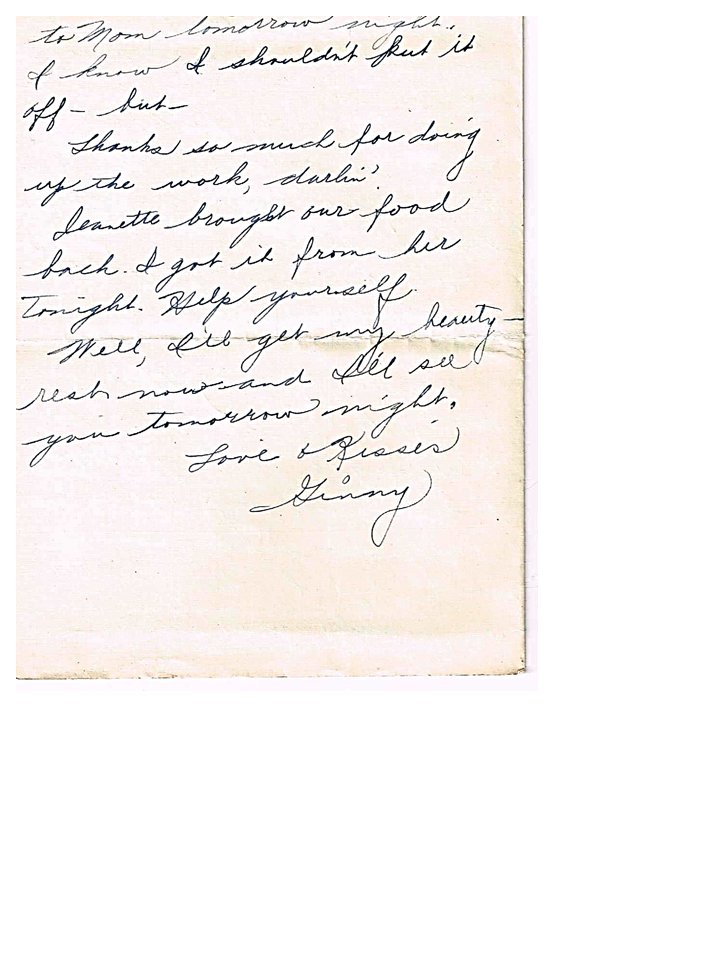 to Mom tomorrow night.
I know I shouldn't put it
off - but -
Thanks so much for doing
up the work, darlin'
Jeanette brought our food
back. I got it from her
Tonight. Help yourself.
Well, I'll get my beauty -
rest now and I'll see
you tomorrow night.
Love & Kisses
Ginny